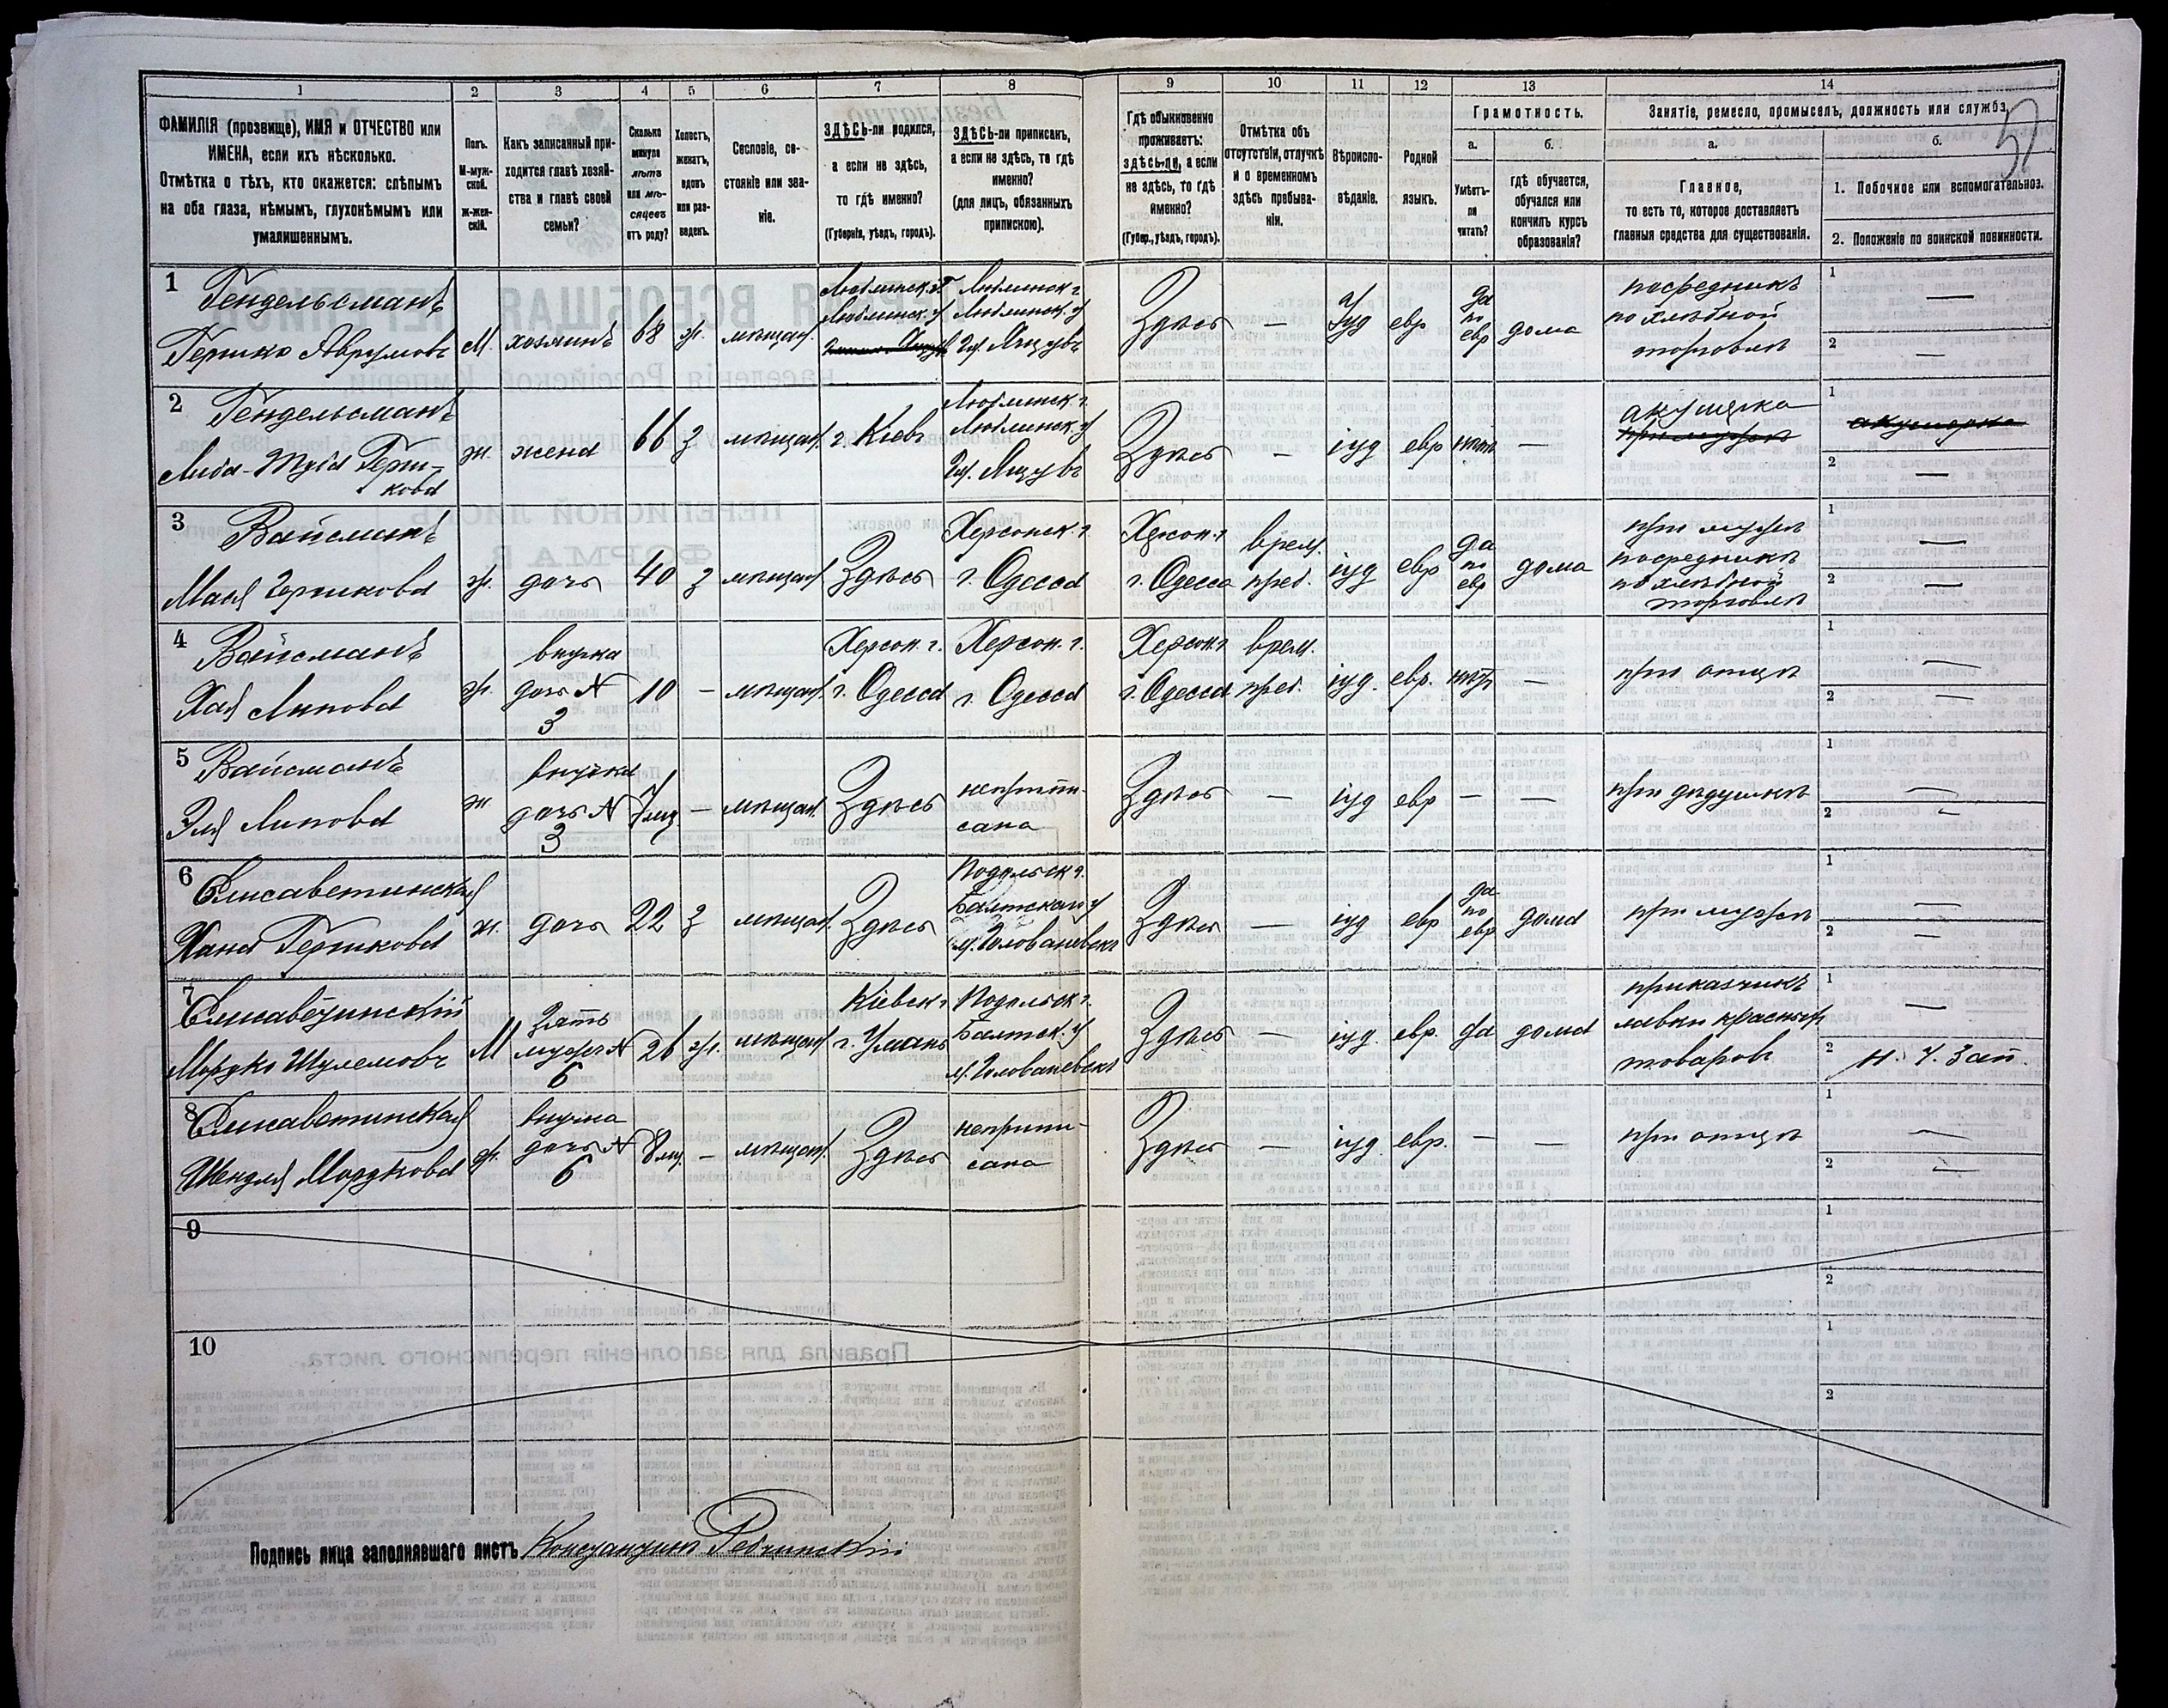 1 2 3 4 5 6 7 8 9 10 11 12 13 14
ФАМИЛІЯ (прозвище), ИМЯ и ОТЧЕСТВО или
ИМЕНА, если ихъ нѣсколько.
Отмѣтка о тѣхъ, кто окажется: слѣпымъ
на оба глаза, нѣмымъ, глухонѣмымъ или
умалишеннымъ.
Полъ.
М-муж-
ской.
ж-жен-
скій.
Какъ записанный при-
ходится главѣ хозяй-
ства и главѣ своей
семьи?
Сколько
минуло
лѣтъ
или мѣ-
сяцевъ
отъ роду?
Холостъ,
женатъ,
вдовъ
или раз-
веденъ.
Сословіе, со-
стояніе или зва-
ніе.
ЗДѢСЬ-ли родился,
а если не здѣсь,
то гдѣ именно?
(Губернія, уѣздъ, городъ).
ЗДѢСЬ-ли приписанъ,
а если не здѣсь, то гдѣ
именно?
(для лицъ, обязанныхъ
припискою).
Гдѣ обыкновенно
проживаетъ:
здѣсь-ли, а если
не здѣсь, то гдѣ
именно?
(Губер., уѣздъ, городъ).
Отмѣтка объ
отсутствіи, отлучкѣ
и о временномъ
здѣсь пребыва-
ніи.
Вѣроиспо-
вѣданіе.
Родной
языкъ.
Грамотность.
а.
Умѣетъ-
ли
читать?
б.
гдѣ обучается,
обучался или
кончилъ курсъ
образованія?
Занятіе, ремесло, промыселъ, должность или служба.
а.
Главное,
то есть то, которое доставляетъ
главныя средства для существованія.
б.
1. Побочное или вспомогательное.
2. Положеніе по воинской повинности.
1
Гендельсманъ
Гершко Аврумовъ
М.
хозяинъ
68
ж.
мѣщан.
Люблинск. г.
Люблинск. у
Люблинск. г.
Люблинск. у
Здѣсь
—
Іуд
евр
да
по
евр
дома
посредникъ
по хлѣбной
торговлѣ
1 —
2 —
2
Гендельсманъ
Герш-
кова
ж.
жена
66
з
мѣщан.
г. Кіевъ
Люблинск. г.
Люблинск. у
Здѣсь
—
іуд
евр
нѣтъ
—
акушерка
1 акушерка
2 —
3
Вайсманъ
Гершкова
ж.
дочь
40
з
мѣщан.
Здѣсь
Херсонск. г.
г. Одесса
Херсон. г
г. Одесса
врем.
преб.
іуд
евр
да
по
евр
дома
при мужѣ
посредникъ
по хлѣбной
торговлѣ
1 —
2 —
4
Вайсманъ
Хая Липова
ж.
внучка
дочь №
3
10
—
мѣщан.
Херсон. г.
г. Одесса
Херсон. г.
г. Одесса
Херсон. г
г. Одесса
врем.
преб.
іуд.
евр.
нѣтъ
—
при отцѣ
1 —
2 —
5
Вайсманъ
Эля Липова
ж
внучка
дочь №
3
7 мц.
—
мѣщан.
Здѣсь
неприпи-
сана
Здѣсь
—
іуд
евр
—
—
при дѣдушкѣ
1 —
2 —
6
Елисаветинская
Хана Гершкова
ж.
дочь
22
з
мѣщан.
Здѣсь
Подольск г.
Балтскаго у
м. Голованевскъ
Здѣсь
—
іуд
евр
да
по
евр
дома
при мужѣ
1 —
2 —
7
Елисаветинскій
Мордко Шулемовъ
М
зять
мужъ №
6
26
ж.
мѣщан
Кіевск г
г. Умань
Подольск г.
Балтск. у
м. Голованевскъ
Здѣсь
—
іуд.
евр.
да
дома
приказчикъ
лавки красныхъ
товаровъ
1 —
2
8
Елисаветинская
Шендля Мордкова
ж.
внучка
дочь №
6
8 мц.
—
мѣщан.
Здѣсь
неприпи-
сана
Здѣсь
—
іуд
евр.
—
—
при отцѣ
1 —
2 —
9
1
2
10
1
2
Подпись лица заполнявшаго листъ